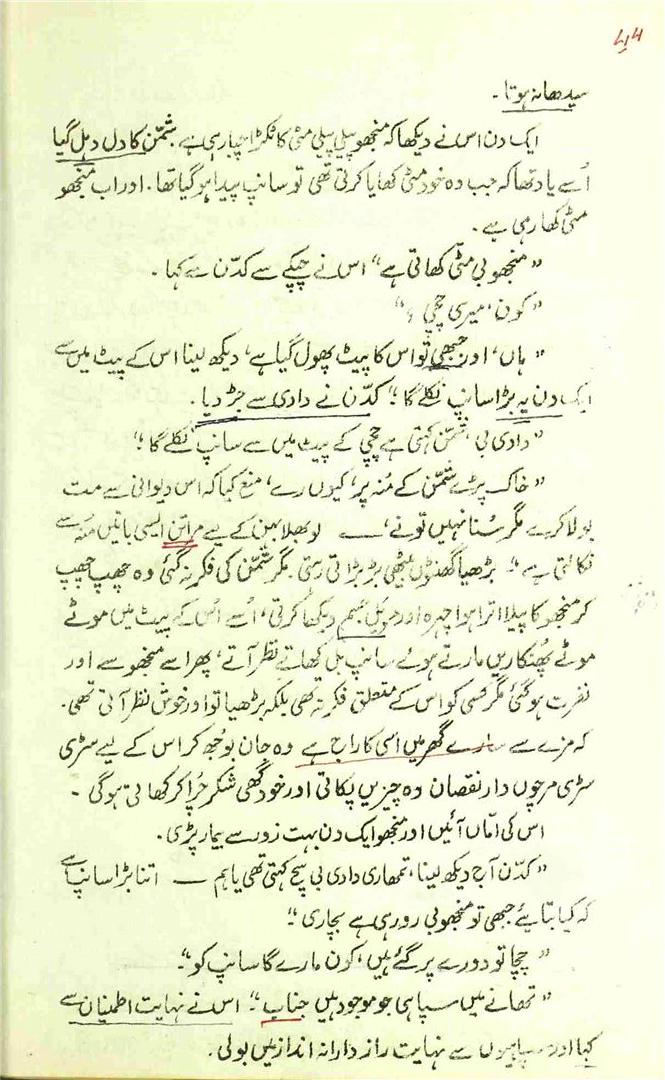 ۴۴
سیدھا نہ ہوتا۔
ایک دن اس نے دیکھا کہ منجھو پیلی پیلی مٹی کا ٹکڑا چبا رہی ہے، شمّن کا دل دہل گیا
اُسے یاد تھا کہ جب وہ خود مٹی کھایا کرتی تھی تو سانپ پیدا ہو گیا تھا۔ اور اب منجھو
مٹی کھا رہی ہے۔
"منجھو بی مٹی کھاتی ہے" اس نے چپکے سے کدّن سے کہا۔
"کون، میری چچی؟"
"ہاں، اور جبھی تو اس کا پیٹ پھول گیا ہے، دیکھ لینا اس کے پیٹ میں سے
ایک دن یہ بڑا سانپ نکلے گا؛" کدّن نے دادی سے جڑ دیا۔
"دادی بی، شمّن کہتی ہے چچی کے پیٹ میں سے سانپ نکلے گا؛"
"خاک پڑے شمّن کے منہ پر، کیوں رے، منع کیا کہ اس دیوانی سے مت
بولا کرے مگر سُنا نہیں تونے، — لو بھلا بہن کے لیے مرابّن ایسی باتیں منہ سے
نکالتی ہے" بڑھیا گھنٹوں بیٹھی بڑبڑاتی رہتی۔ مگر شمّن کی فکر نہ گئی وہ چھپ چھپ
کر منجھو کا پیلا اترا ہوا چہرہ اور مریل جسم دیکھا کرتی، اُسے اُس کے پیٹ میں موٹے
موٹے پھنکاریں مارتے ہوئے سانپ بل کھاتے نظر آتے، پھر اسے منجھو سے اور
نفرت ہو گئی مگر کسی کو اس کے متعلق فکر نہ تھی بلکہ بڑھیا تو اور خوش نظر آتی تھی۔
کہ مزے سے سارے گھر میں اسی کا راج ہے وہ جان بوجھ کر اس کے لیے سڑی
سڑی مرچوں دار نقصان دہ چیزیں پکاتی اور خود گھی شکر چرا کر کھاتی ہوگی۔
اس کی امّاں آئیں اور منجھو ایک دن بہت زور سے بیمار پڑی۔
"کدّن آج دیکھ لینا، تمھاری دادی بی سچ کہتی تھی یا ہم — اتنا بڑا سانپ ہے
کہ کیا بتائیے جبھی تو منجھو بی رو رہی ہے بچاری"۔
"چچا تو دورے پر گئے ہیں، کون مارے گا سانپ کو"۔
"تھانے میں سپاہی جو موجود ہیں جناب"۔ اس نے نہایت اطمنیان سے
کہا اور سپاہیوں سے نہایت راز دارانہ انداز میں بولی۔